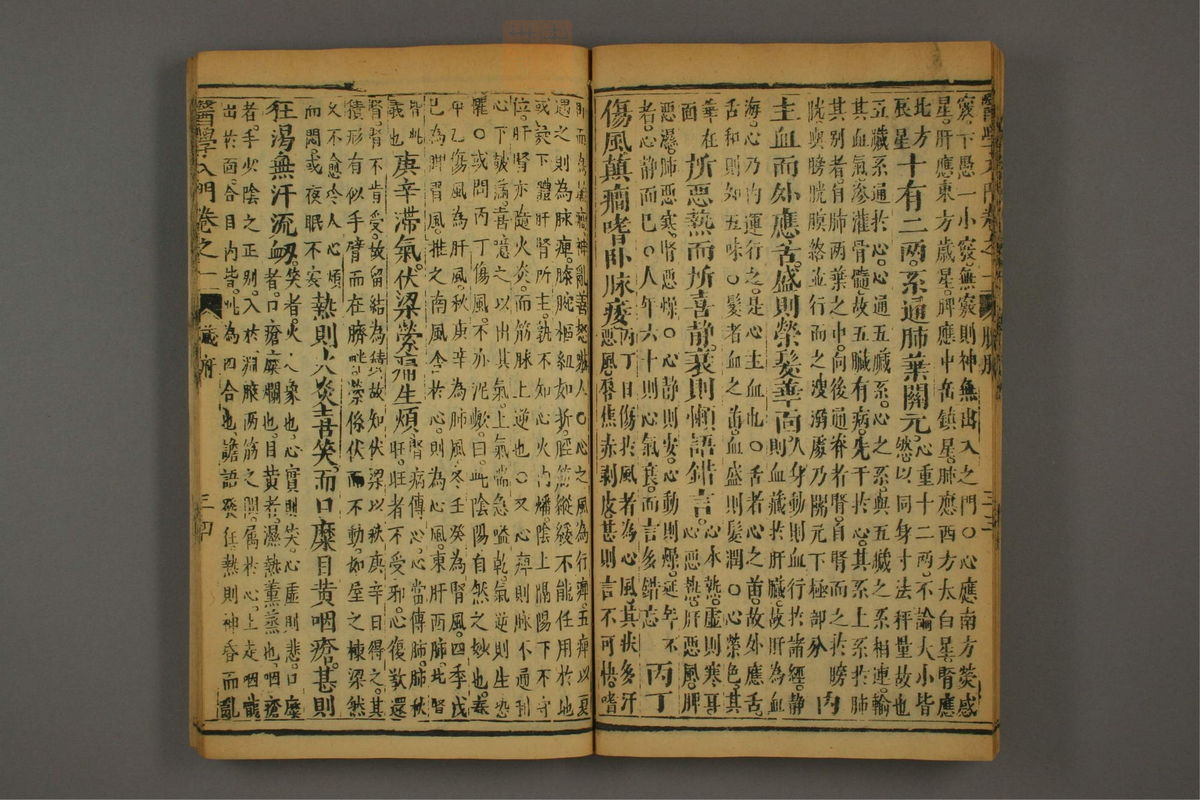 竅。下慝一小竅無竅則神無出入之門○心應南方熒惑
星。肝應東方歲星。脾應中岳鎮星。肺應西方太白星腎應
北方
辰星
十有二兩。系通肺葉關元。
心重十二兩。不論大小皆
然以同身寸法秤量故也
五臟系通於心。心通五臟系。心之系與五臟之系相連。輸
其血氣滲灌骨髓。故五臟有病。先干於心。其系上系於肺
其別者自肺兩葉之中。向後通脊者腎。自腎而之於膀
胱與膀胱膜絡並行而之溲溺處乃關元下極部分
內
主血而外應舌。盛則榮髮華面。
人身動則血行於諸經。靜
則血藏於肝臟。故肝為血
海。心乃內運行之。是心主血也○舌者心之苗。故外應舌
舌和則知五味○髮者血之苗。血盛則髮潤○心榮色。其
華在
面
所惡熱而所喜靜。衰則懶語錯言。
心本熱。虛則寒耳
心惡熱。肝惡風。脾
惡濕。肺惡寒。腎惡燥○心靜則安。心動則燥。延年不
者。心靜而已○人年六十則心氣衰。而言多錯忘
丙丁
傷風 癎嗜臥脉痿
丙丁日傷於風者為心風。其狀多汗
惡風。唇焦赤剥皮。甚則言不可快。嗜
人○心之風為行痹。五痹以夏
遇之則為脉痺。膝腕樞紐如折。脛筋縱緩不能任用於地
或 下體肝腎所主。孰不知心火內燔。陰上隔陽下不守
位。肝腎亦隨火炎。而筋脉上逆也○又心痹則脉不通
心下皷滿。喜噫之以出其氣上氣喘急嗌乾。氣逆則生恐
懼○或問丙丁傷風。不亦泥歟。曰。此陰陽自然之妙也。春
甲乙傷風為肝風。秋庚辛為肺風。冬壬癸為腎風。四季戊
己為脾胃風。推之南風令於心。則為心風。東肝西肺。此腎
皆此
義也
庚辛滯氣。伏梁縈痛生煩。
腎病傳心。心當傳肺。肺秋
旺。旺者不受邪。心復欲還
腎。腎不肯受。故留結為積。故知伏梁以秋庚辛日得之。其
積形有似手臂而在臍 縈係伏而不動。如屋之棟梁然
久不愈令人心煩
而悶或夜眠不安
熱則火炎喜笑。而口糜目黃咽瘡。甚則
狂渴無汗流衂。
笑者。火之象也。心實則笑。心虛則悲。口糜
者。口瘡糜爛也。目黃者。濕熱薰蒸也。咽瘡
者。手少陰之正別。入於淵腋兩筋之間。屬於心。上走咽嚨
出於面。合目內眥。此為四合也。譫語發狂熱則神昏而亂
醫學入門卷之一
臟腑
三四
臟腑
三三